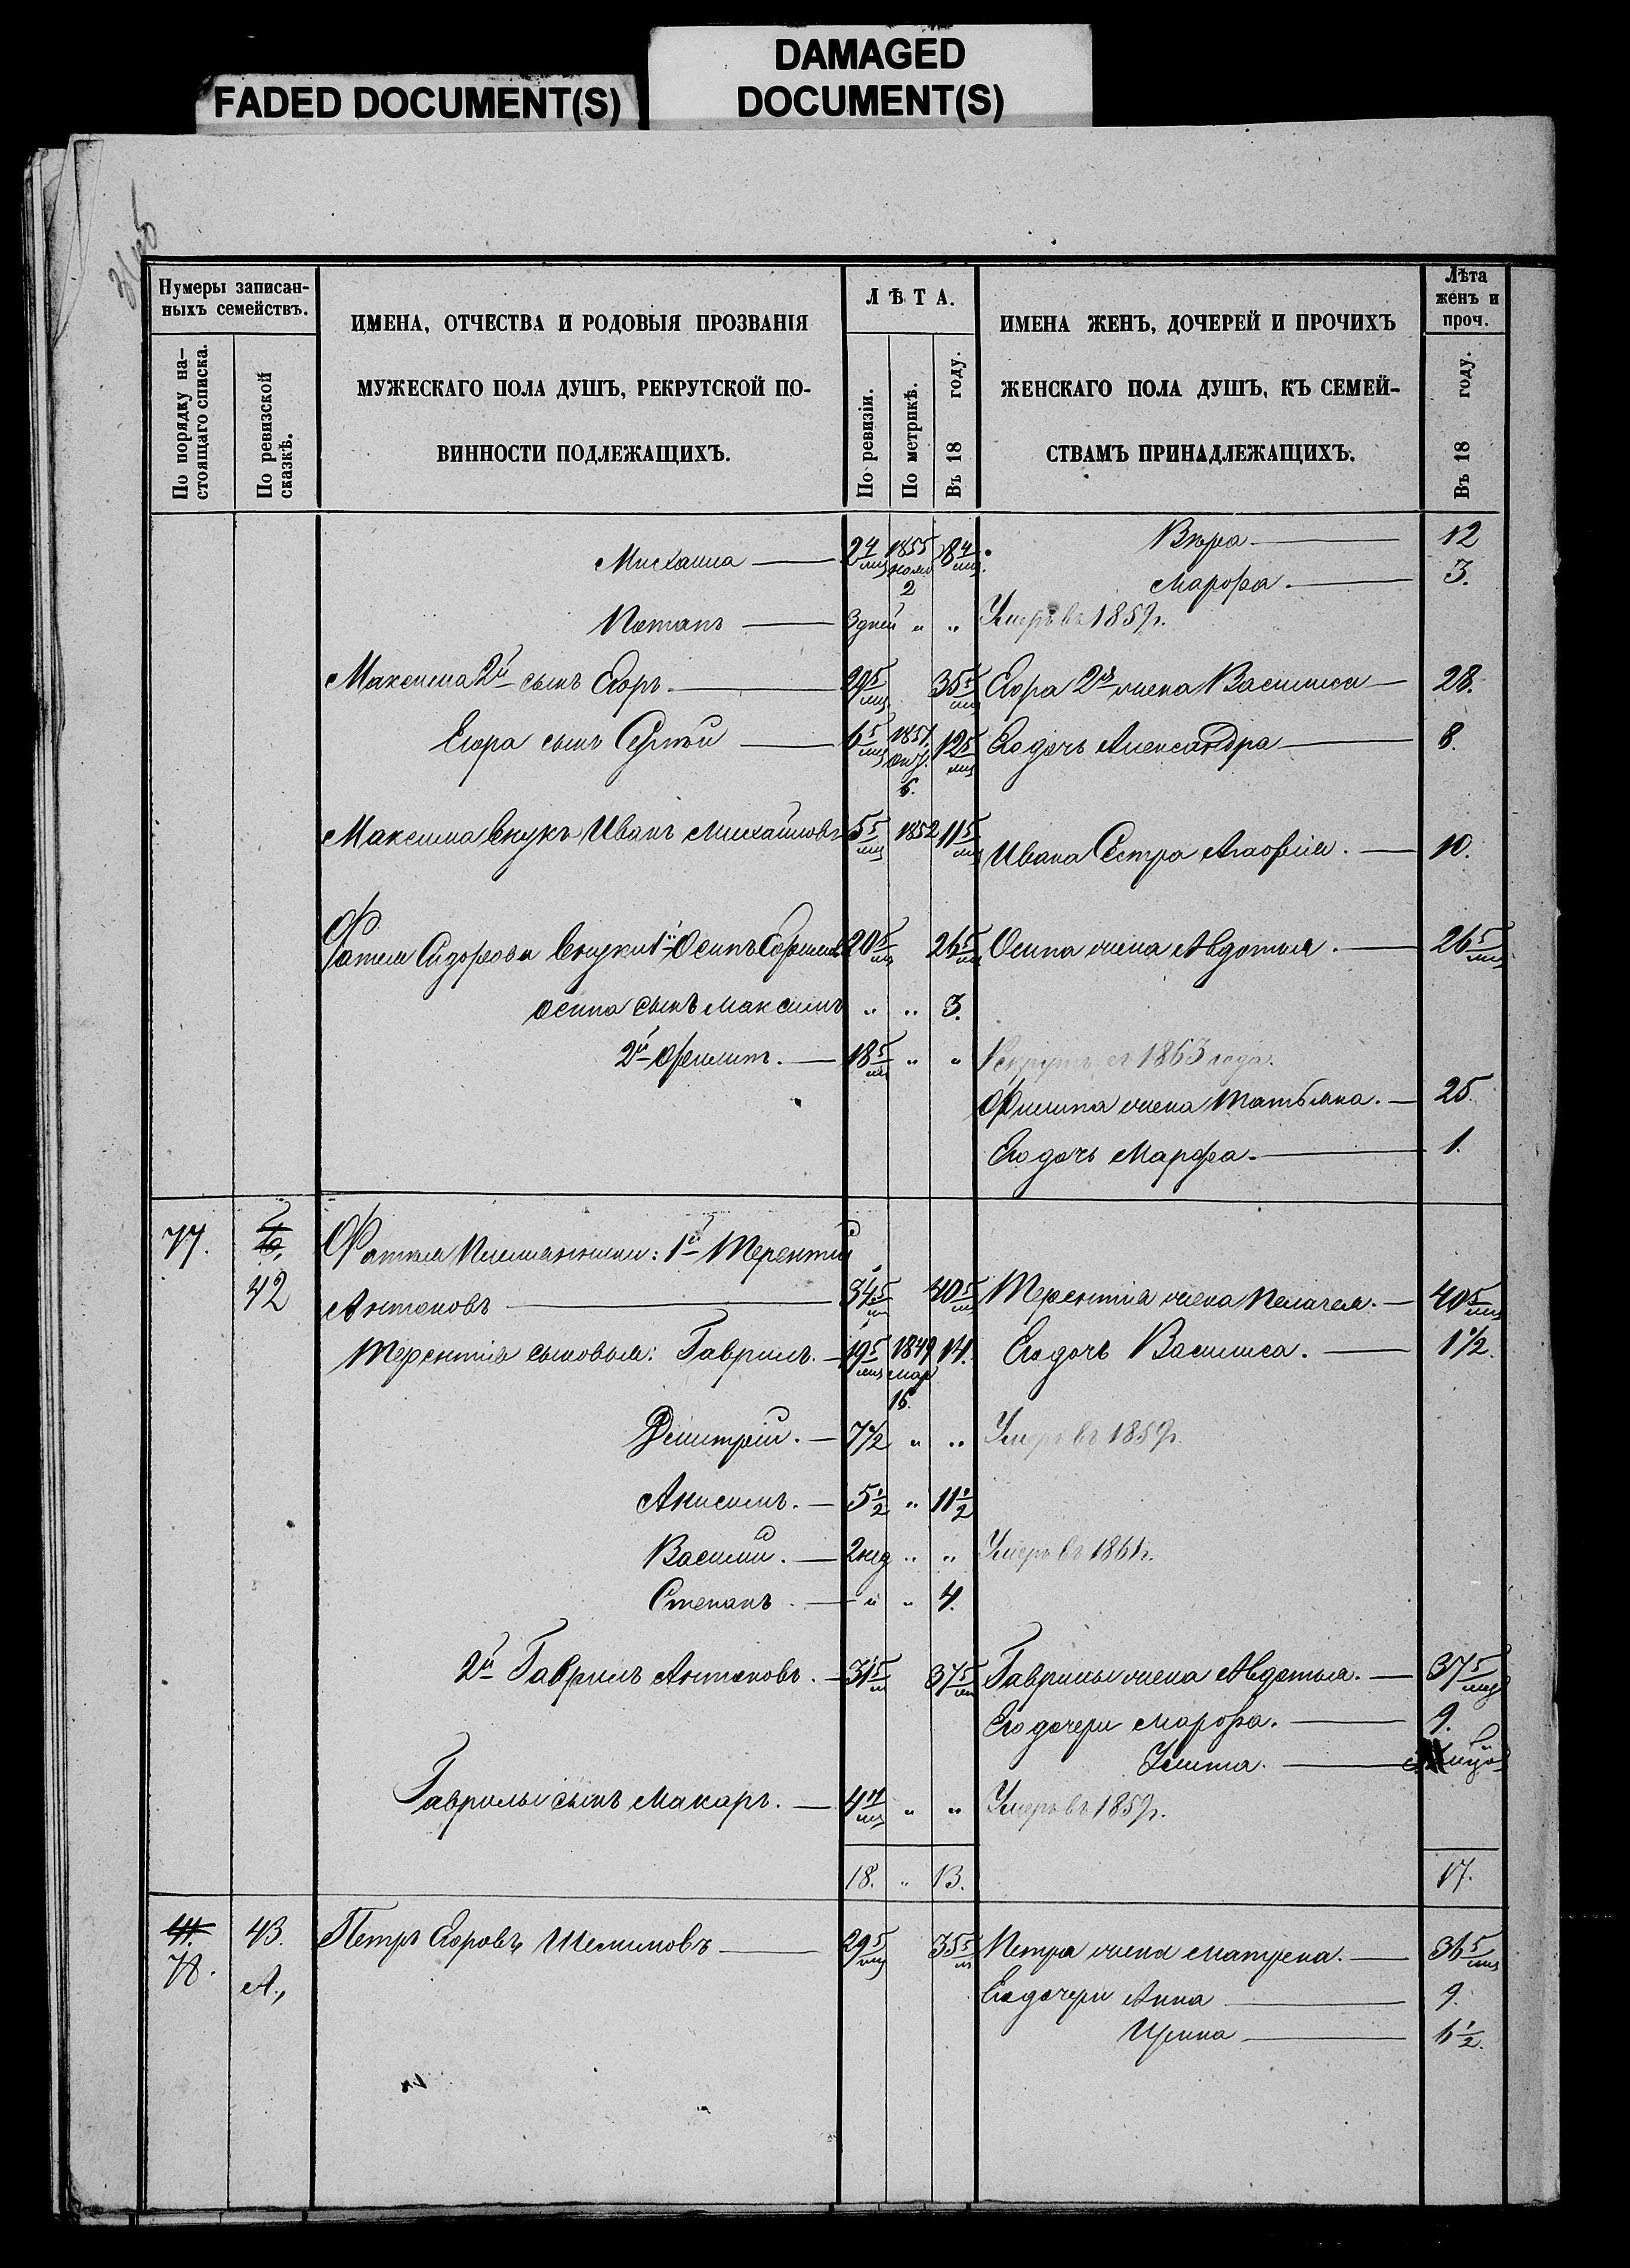 FADED DOCUMENT(S)
DAMAGED
DOCUMENT(S)
Нумеры записан-
ныхъ семействъ.
По порядку на-
стоящаго списка.
По ревизской
сказкѣ.
ИМЕНА, ОТЧЕСТВА И РОДОВЫЯ ПРОЗВАНІЯ
МУЖЕСКАГО ПОЛА ДУШЪ, РЕКРУТСКОЙ ПО-
ВИННОСТИ ПОДЛЕЖАЩИХЪ.
ЛѢТА.
По ревизіи.
По метрикѣ.
Въ 18 году.
ИМЕНА ЖЕНЪ, ДОЧЕРЕЙ И ПРОЧИХЪ
ЖЕНСКАГО ПОЛА ДУШЪ, КЪ СЕМЕЙ-
СТВАМЪ ПРИНАДЛЕЖАЩИХЪ.
Лѣта
женъ и
проч.
Въ 18 году.
Михаила 2 4/мц 1855 2 8 4/мц Вѣра 12
Марфа. 3.
Потапъ 3 дней " " Умеръ въ 1859 г.
Максима 2й сынъ Егоръ 29 5/мц 35 5/мц Егора 2я жена Василиса 28.
Егора сынъ Сергѣй 6 5/мц 1851 окт. 6. 12 5/мц Его дочь Александра 8.
Максима внукъ Иванъ Михайловъ 5 5/мц 1852 11 5/мц
Ивана Сестра Агафья. 10.
Сидорова внуки 1й Осипъ 20 5/мц 26 5/мц Осипа жена Авдотья. 26 5/мц
Осипа сынъ Максимъ " " 3.
2й Филипъ. 18 5/мц " " Рекрутъ съ 1863 года.
Филипа жена Татьяна. 25.
Его дочь Марфа. 1.
77. 42
1й Терентій
Антоновъ 34 5/мц 40 5/мц Терентія жена Пелагея. 40 5/мц
Терентія сыновья: Гаврилъ. 1849 мар 15. 14. Его дочь Василиса. 1 1/2.
Димитрій. 7 1/2 " " Умеръ въ 1859 г.
Анисимъ. 5 1/2 " 11 1/2
Василій. 2 нед " " Умеръ въ 1861 г.
Степанъ. " " 4.
2й Гаврилъ Антоновъ. 31 5/м 37 5/мц Гаврилы жена Авдотья. 37 5/мц
Его дочери Марфа. 9.
Улита.
Гаврилы сынъ Макаръ. 4 11/мц " " Умеръ въ 1859 г.
18. " 13. 17.
78. 43. Петръ Егоровъ 29 5/мц 35 5/м Петра жена Матрена. 36 5/мц
А., Его дочери Анна 9.
Ирина 6 1/2.